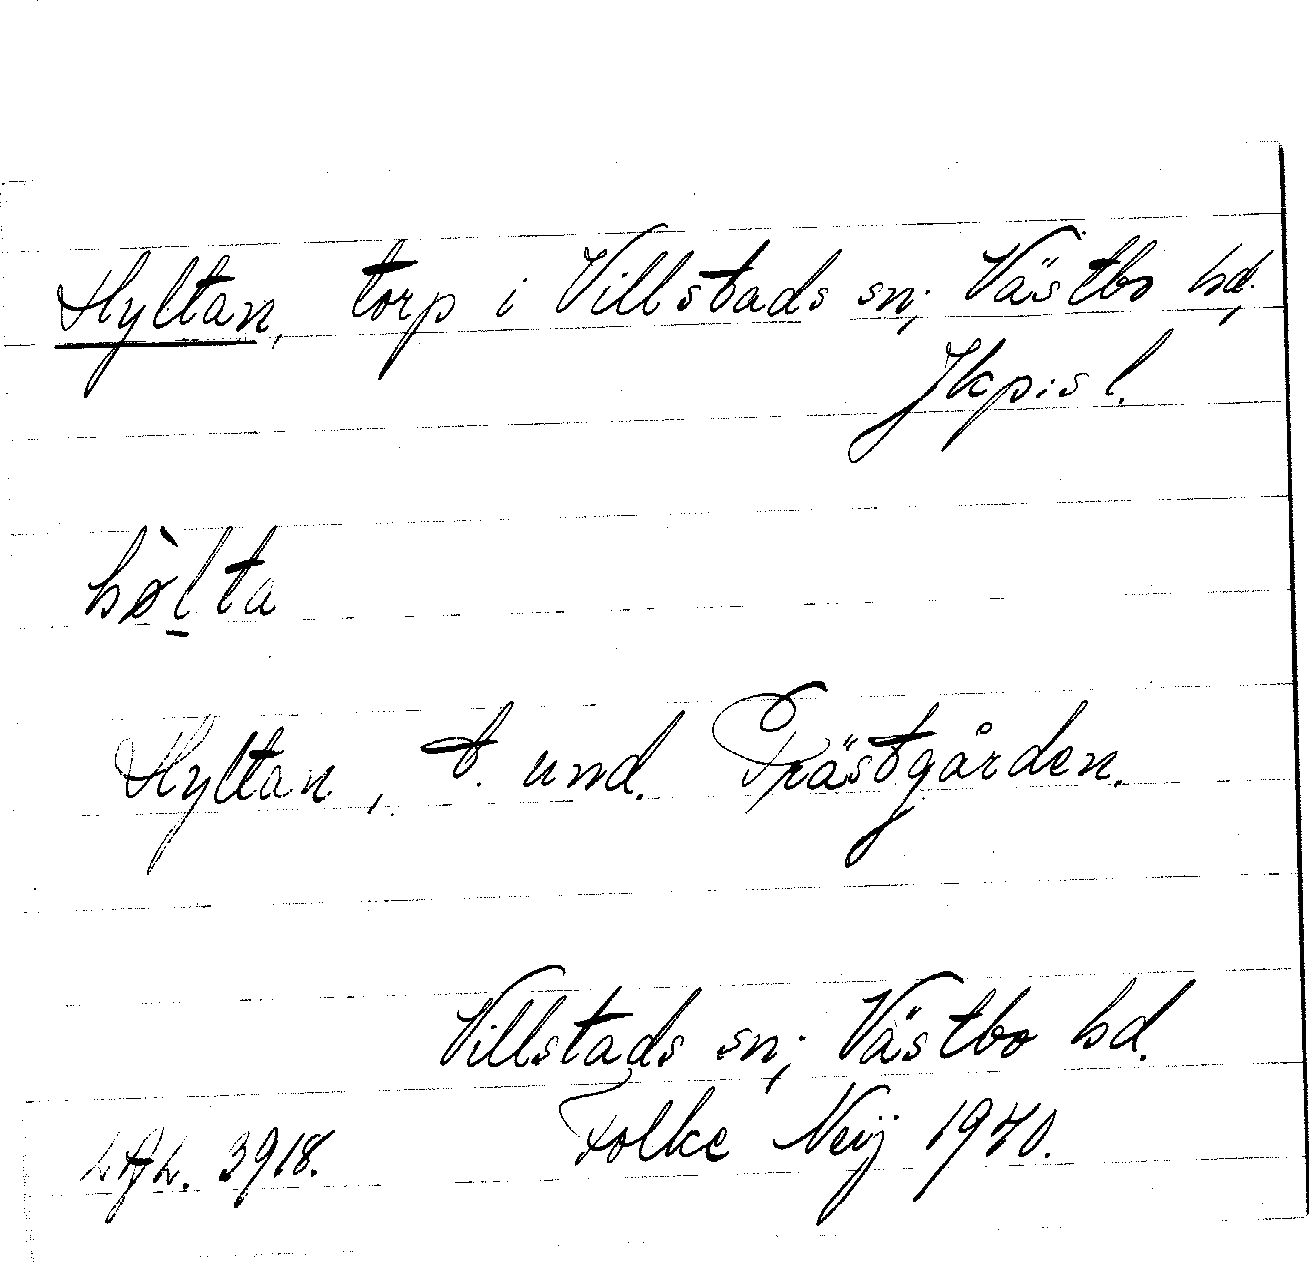 Hyltan, torp i Villstads sn; Västbo hd,
Jkp:s l.
hø̀l̠ta
Hyltan, t. und. Prästgården.
Villstads sn; Västbo hd.
Folke Neij 1940.
3918.